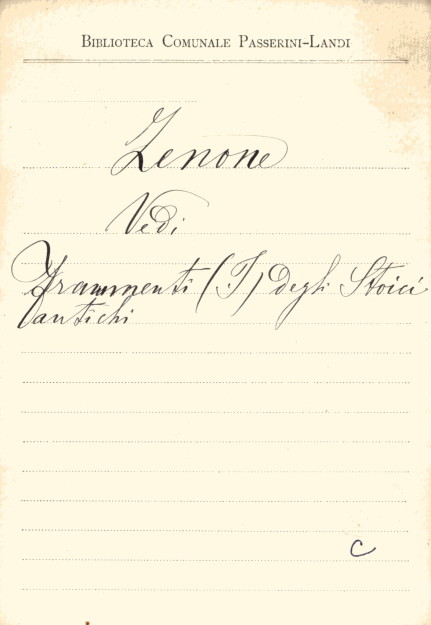 BIBLIOTECA COMUNALE PASSERINI-LANDI
Zenone
Vedi
Frammenti (I) degli Stoici
antichi
C